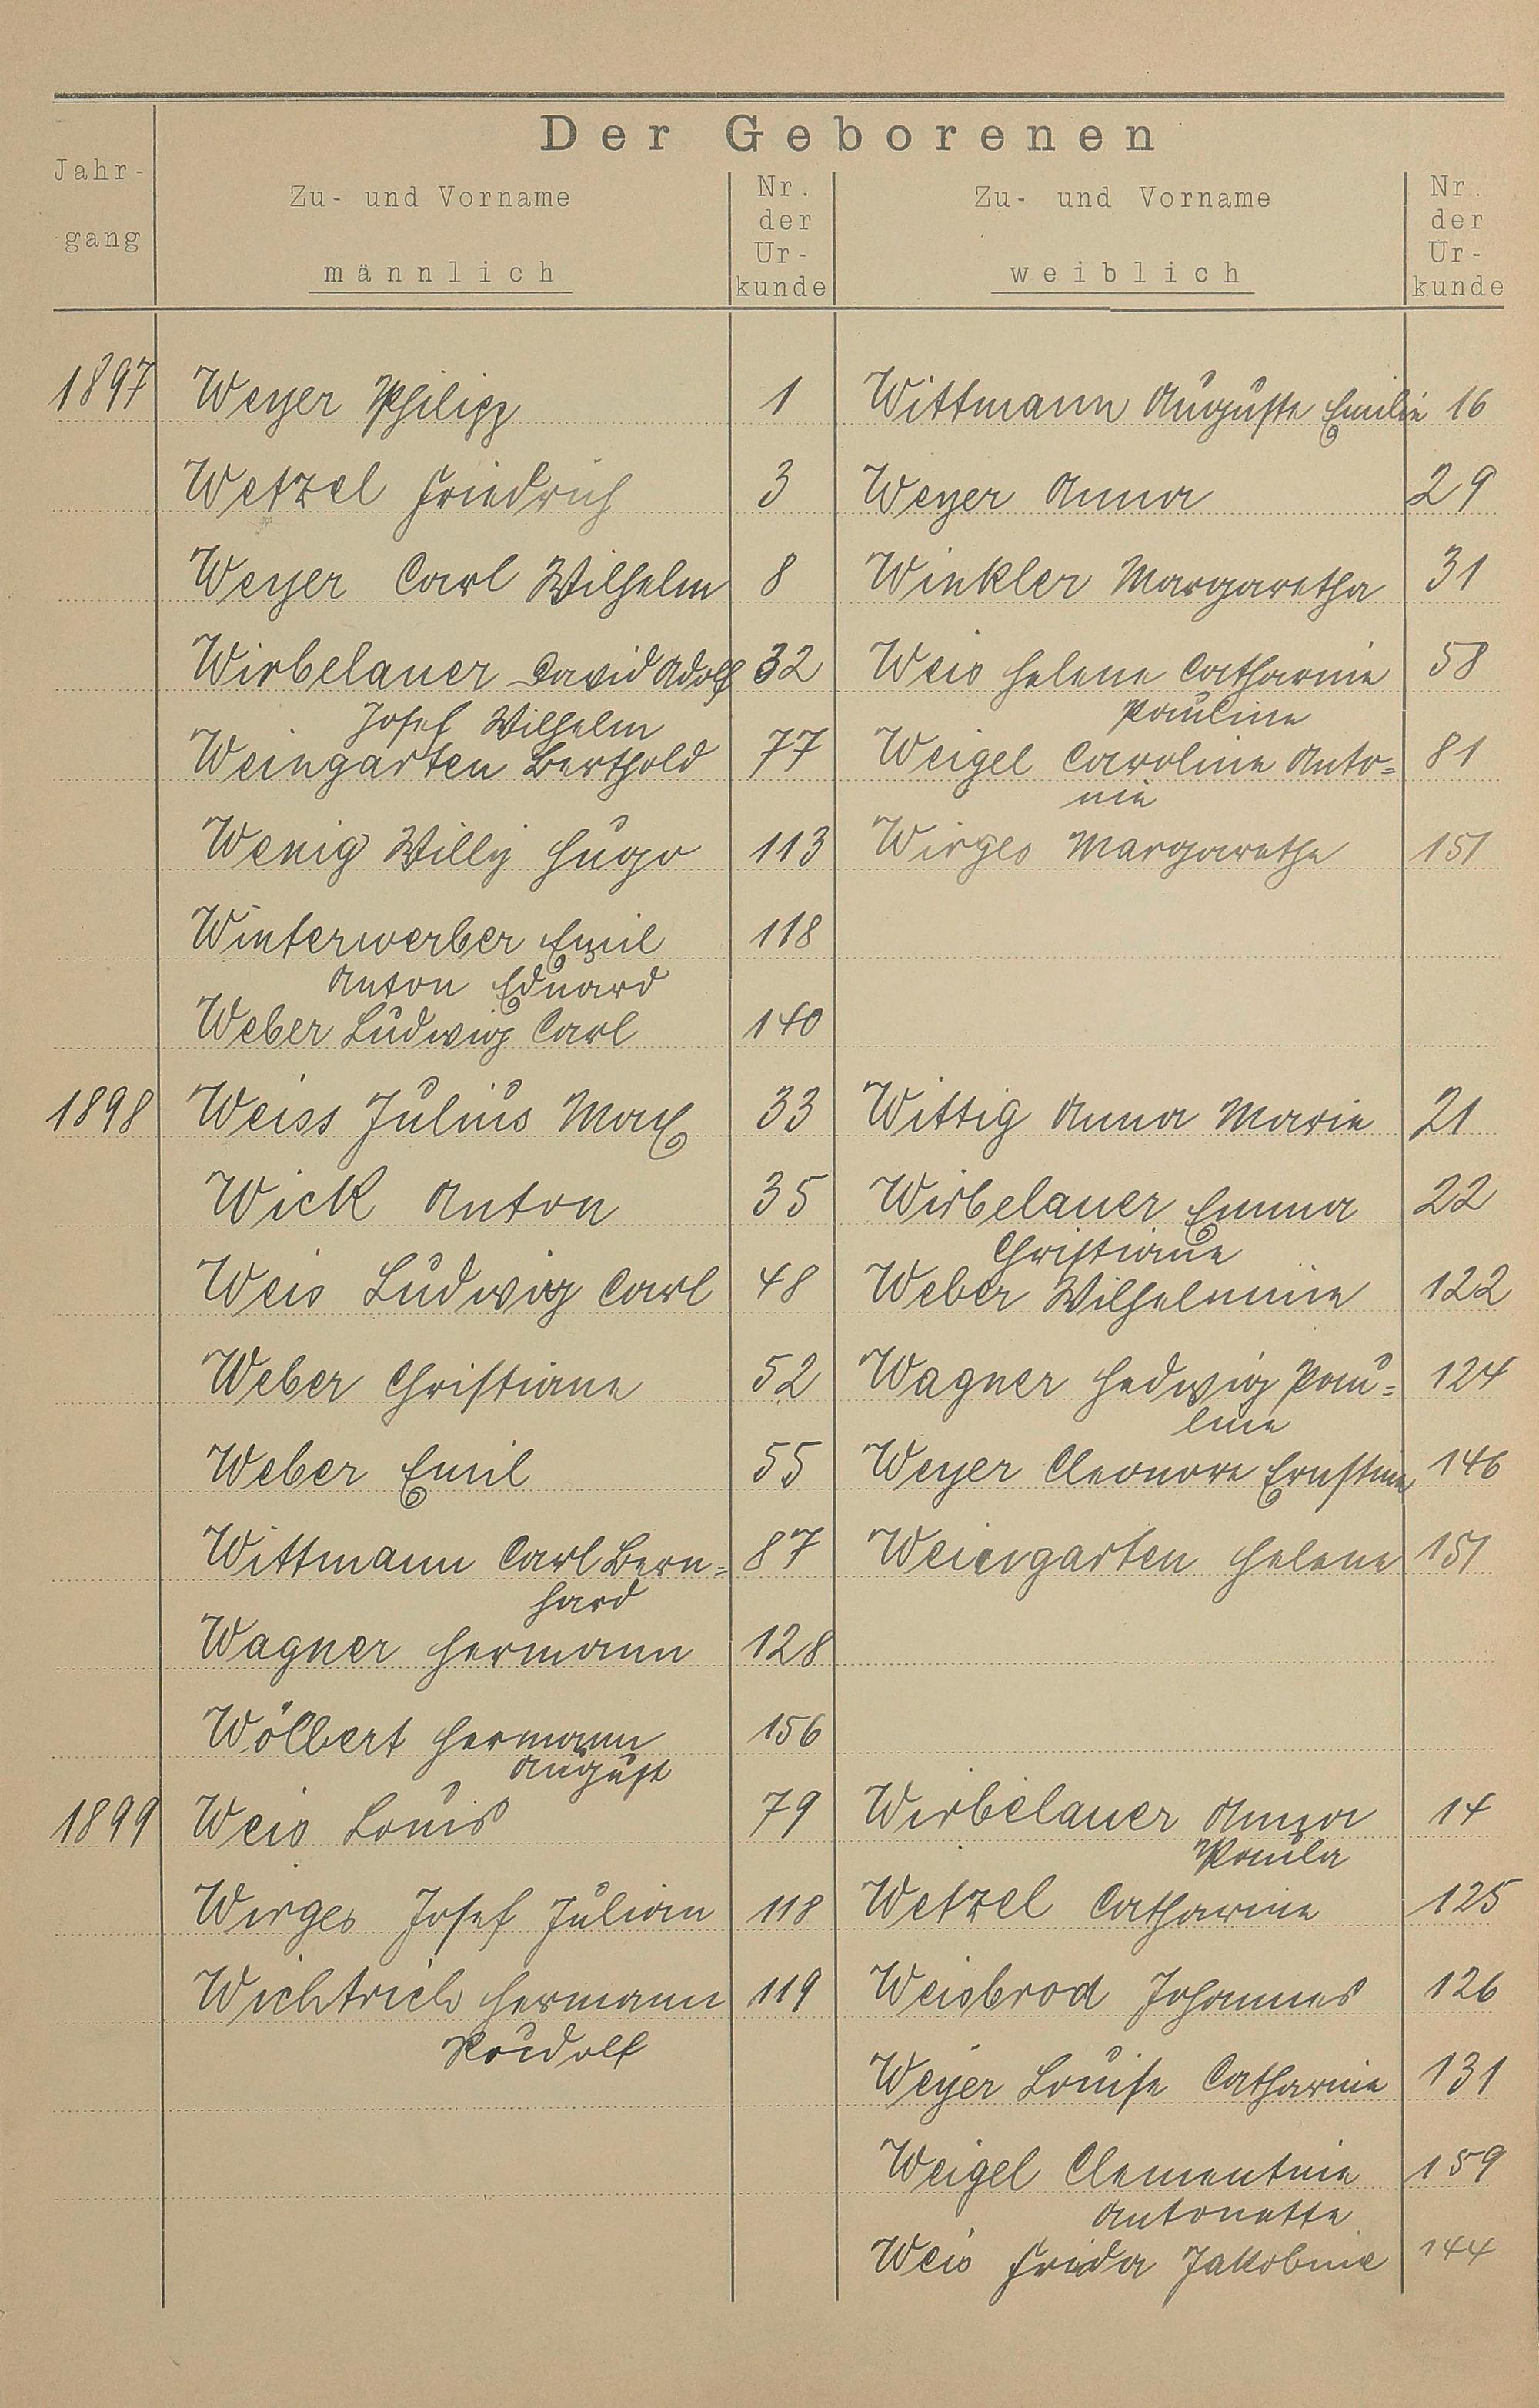 Der Geborenen
Jahrgang
Zu- und Vorname männlich
Nr. der Urkunde
Zu- und Vorname weiblich
Nr. der Urkunde
1897 Weyer Philipp 1 Wittmann Auguste Emilie 16
Wetzel Friedrich 3 Weyer Anna 29
Weyer Carl Wilhelm 8 Winkler Margaretha 31
Wirbelauer David Adolf 32 Weis Helene Catharine 58
Josef Wilhelm Pauline
Weingarten Berthold 77 Weigel Caroline Anto= 81
nie
Wenig Willy Hugo 113 Wirges Margarethe 151
Winterwerber Emil 118
Anton Eduard
Weber Ludwig Carl 140
1898 Weiss Julius Max 33 Wittig Anna Marie 21
Wick Anton 35 Wirbelauer Emma 22
Christiane
Weis Ludwig Carl 48 Weber Wilhelmine 122
Weber Christiane 52 Wagner Hedwig Pau= 124
line
Weber Emil 55 Weyer Eleonore Ernstine 146
Wittmann Carl Bern= 87 Weingarten Helene 151
hard
Wagner Hermann 128
Wölbert Hermann 156
August
1899 Weis Louis 79 Wirbelauer Anna 14
Paula
Wirges Josef Julian 118 Wetzel Catharine 125
Wichtrich Hermann 119 Weisbrod Johannes 126
Rudolf
Weyer Louise Catharine 131
Weigel Clementine 159
Antonette
Weis Frieda Jakobine 144